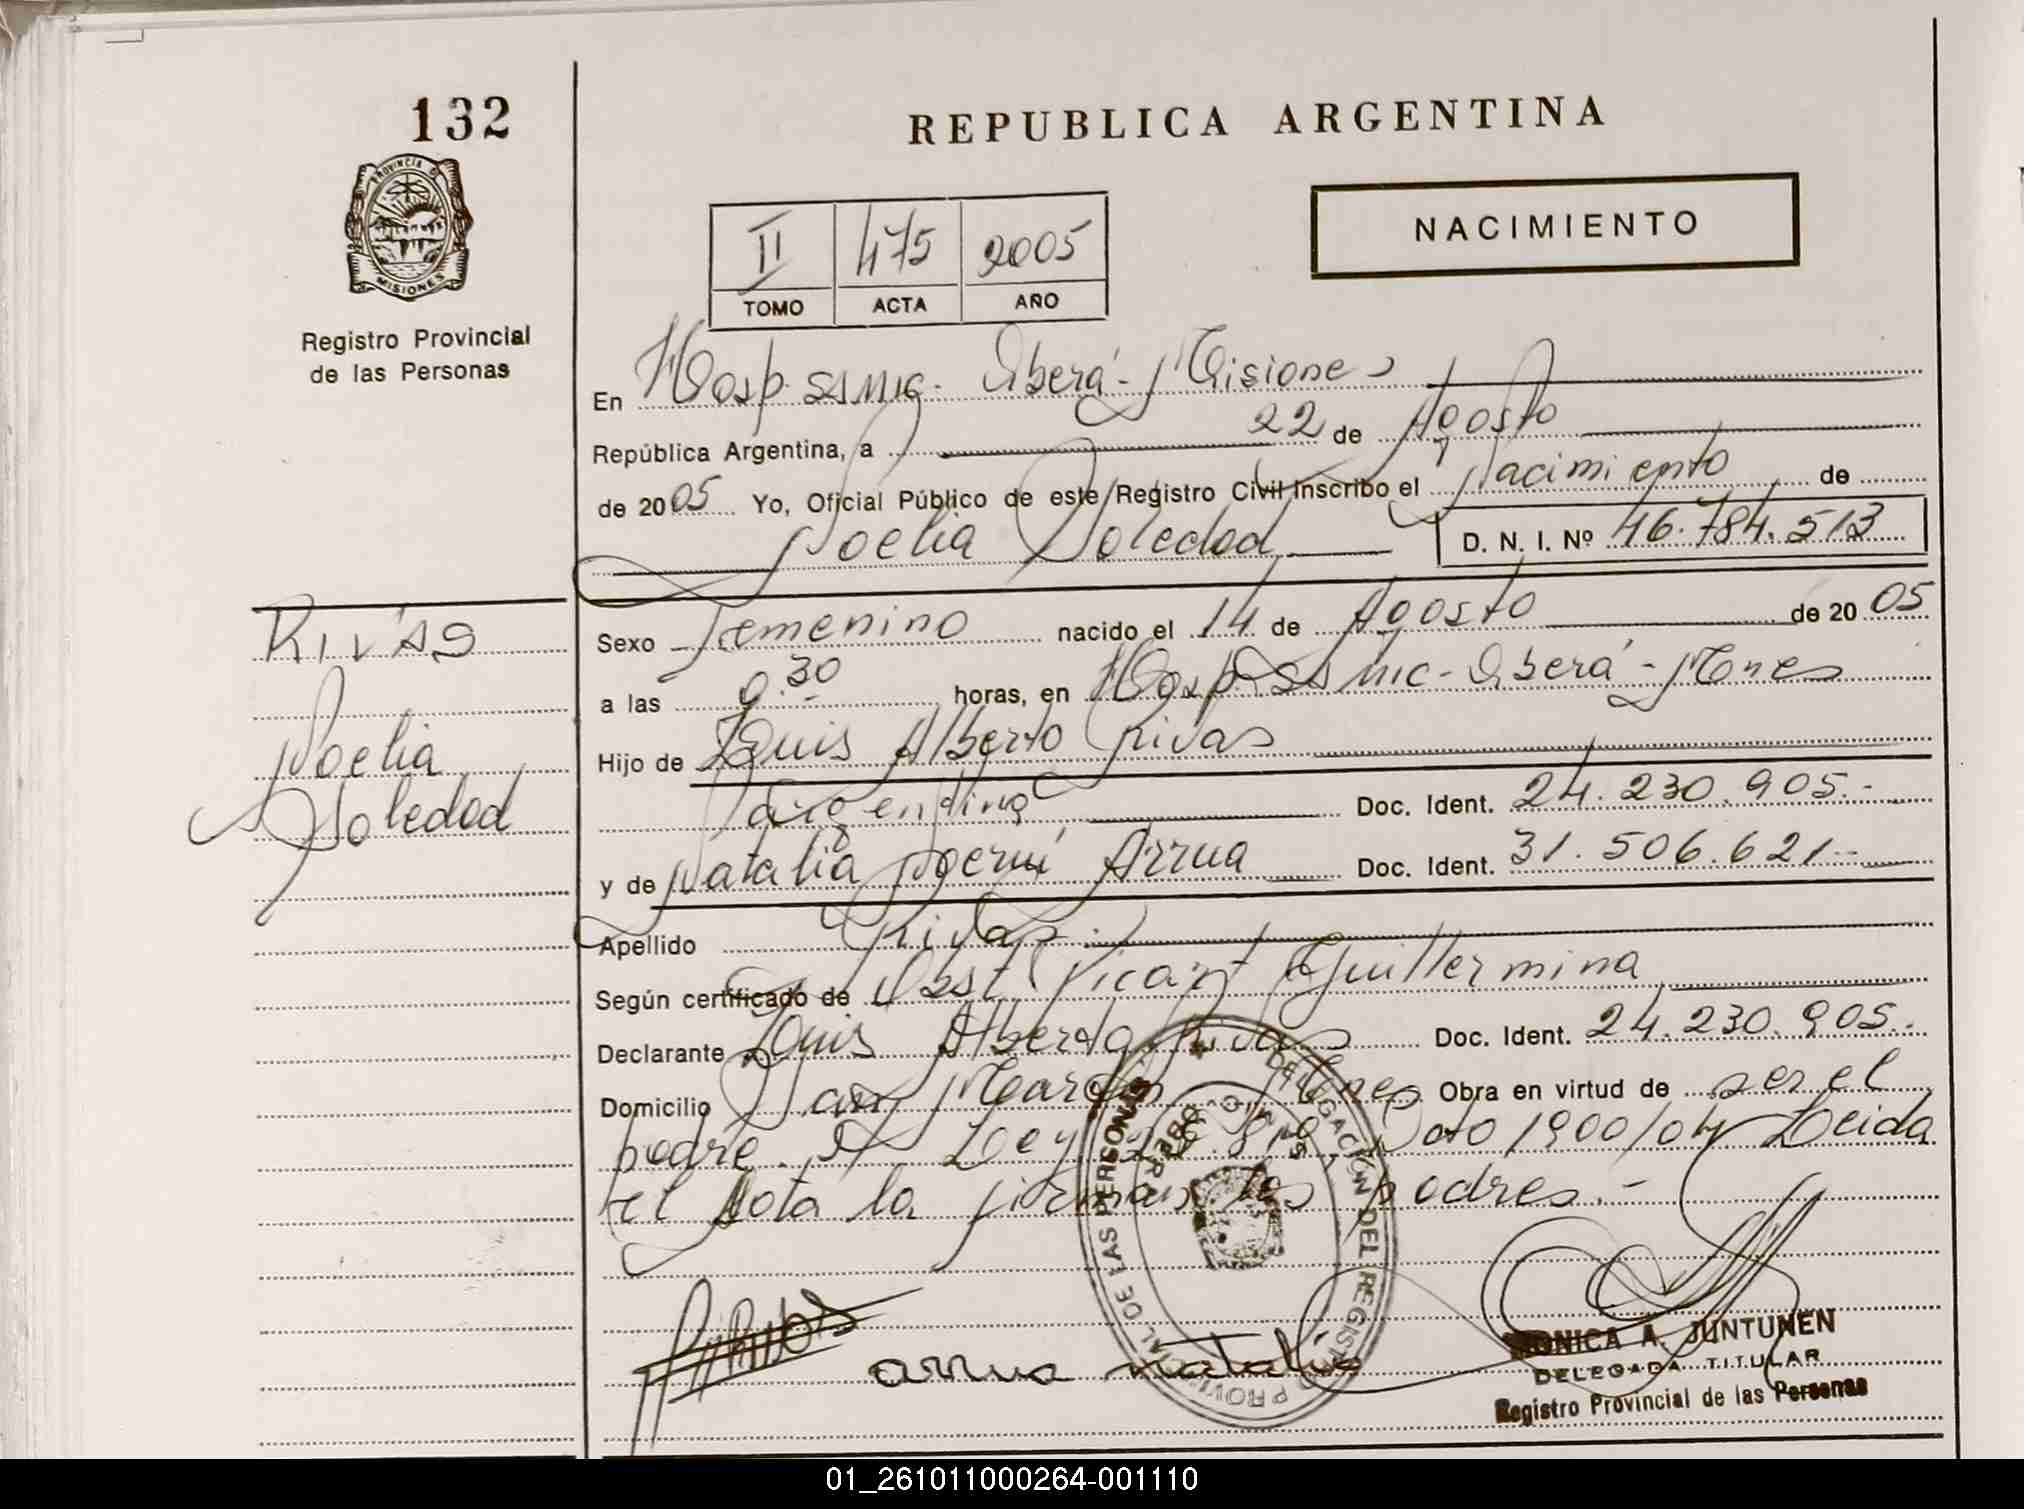 132
REPUBLICA ARGENTINA
PROVINCIA D
MISIONES
NACIMIENTO
II 475 2005
TOMO ACTA AÑO
Registro Provincial
de las Personas
En Hosp. SSMIC. Oberá - Misiones
República Argentina, a 22 de Agosto
de 2005 Yo, Oficial Público de este Registro Civil Inscribo el Nacimiento de
Noelia Soledad D. N. I. Nº 46.784.513
RIVAS
Noelia
Soledad
Sexo Femenino nacido el 14 de Agosto de 2005
a las 9.30 horas, en Hosp. SSMIC - Oberá - Mnes
Hijo de Luis Alberto Rivas
argentina Doc. Ident. 24.230.905.-
y de Natalia Noemí Arrua Doc. Ident. 31.506.621.-
Apellido Rivas.
Según certificado de Obst Picazt Guillermina
Declarante Luis Alberto Rivas Doc. Ident. 24.230.905.
Domicilio San Martín Mnes Obra en virtud de ser el
padre. Ley Dto 1900/04 Leida
el Acta la firman los padres.-
DELEGACIÓN DEL REGISTRO PROVINCIAL DE LAS PERSONAS
OBERA
arrua natalia
MONICA A. JUNTUNEN
DELEGADA TITULAR
Registro Provincial de las Personas
01_261011000264-001110